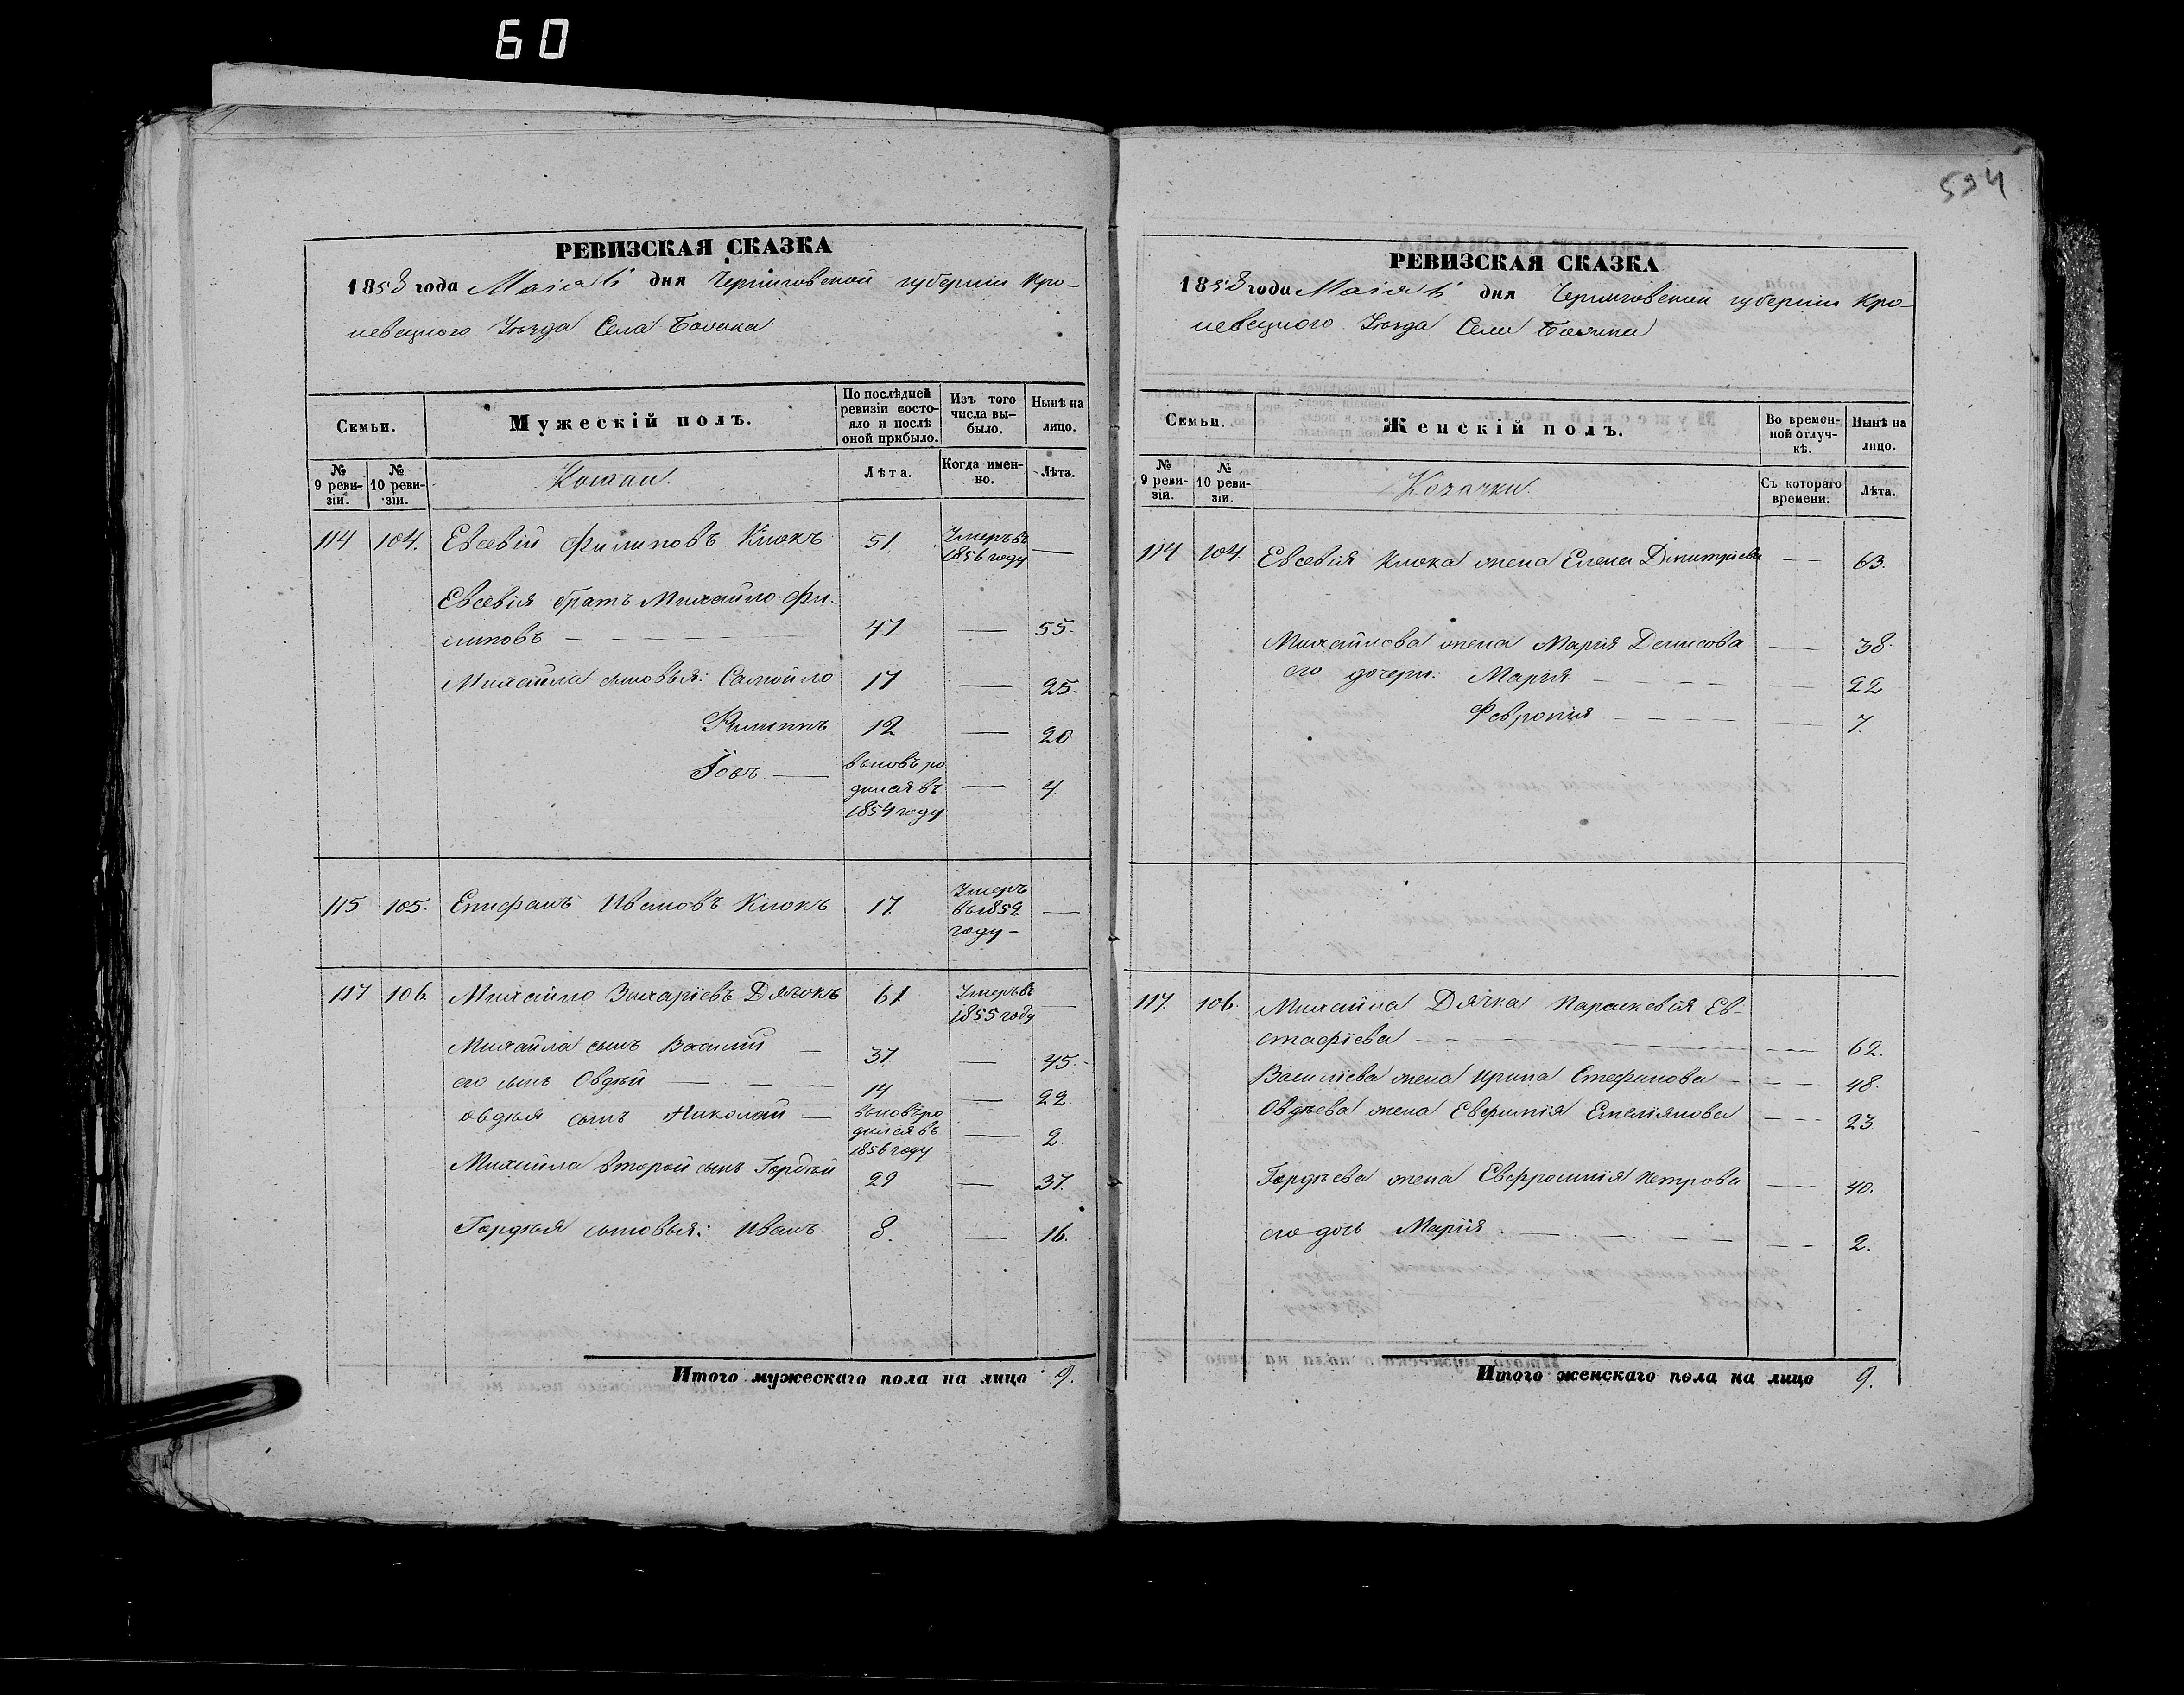 60
594
РЕВИЗСКАЯ СКАЗКА
1858 года Маія 6 дня Черниговской губерніи Кро-
левецкого Уѣзда Села
Семьи.
Мужескій полъ.
По послѣдней ревизіи состо-яло и послѣ оной прибыло.
Изъ того числа вы-было.
Нынѣ на лицо.
№ 9 реви-зіи.
№ 10 реви-зіи.
Козаки.
Лѣта.
Когда имен-но.
Лѣта.
114 104. Евсевій Филиповъ Клокъ 51. Умеръ въ 1856 году —
Евсевія братъ Михайло Фи-
липовъ — — — — — 47 — 55.
Михайла сыновья: Самойло 17 — 25.
Филиппъ 12 — 20
Іовъ — вновь ро дился въ 1854 году — 4.
115 105. Епифанъ Ивановъ Клокъ 17. Умеръ въ 1852 году — —
117 106. Михайло Захаріевъ Дячокъ 61 Умеръ въ 1855 году —
Михайла сынъ Василій — 37. — 45.
его сынъ Овдѣй — — — 14 — 22.
Овдѣя сынъ Николай — вновь ро дился въ 1856 году — 2.
Михайла второй сынъ Гордѣй 29 — 37.
Гордѣя сыновья: Иванъ 8. — 16.
Итого мужескаго пола на лицо 9.
РЕВИЗСКАЯ СКАЗКА
1858 года Маія 6 дня Черниговской губерніи Кро-
левецкого Уѣзда Села
Семьи.
Женскій полъ.
Во времен-ной отлуч-кѣ.
Нынѣ на лицо.
№ 9 реви-зіи.
№ 10 реви-зіи.
Козачки.
Съ котораго времени.
Лѣта.
114 104. Евсевія Клока жена Елена Дмитріева — — 63.
Михайлова жена Марія Денисова — — 38.
его дочери: Марія — — — — — — 22
Февронія — — — — — — 7.
117. 106. Михайла Дячка Параскевія Ев-
стафіева — — — — — — 62.
Василіева жена Ирина Стефанова — — — 48.
Овдѣева жена Евфимія Емеліянова — — — 23.
Гордѣева жена Евфросинія Петрова — — 40.
его дочь Марія — — — — — — 2.
Итого женскаго пола на лицо 9.